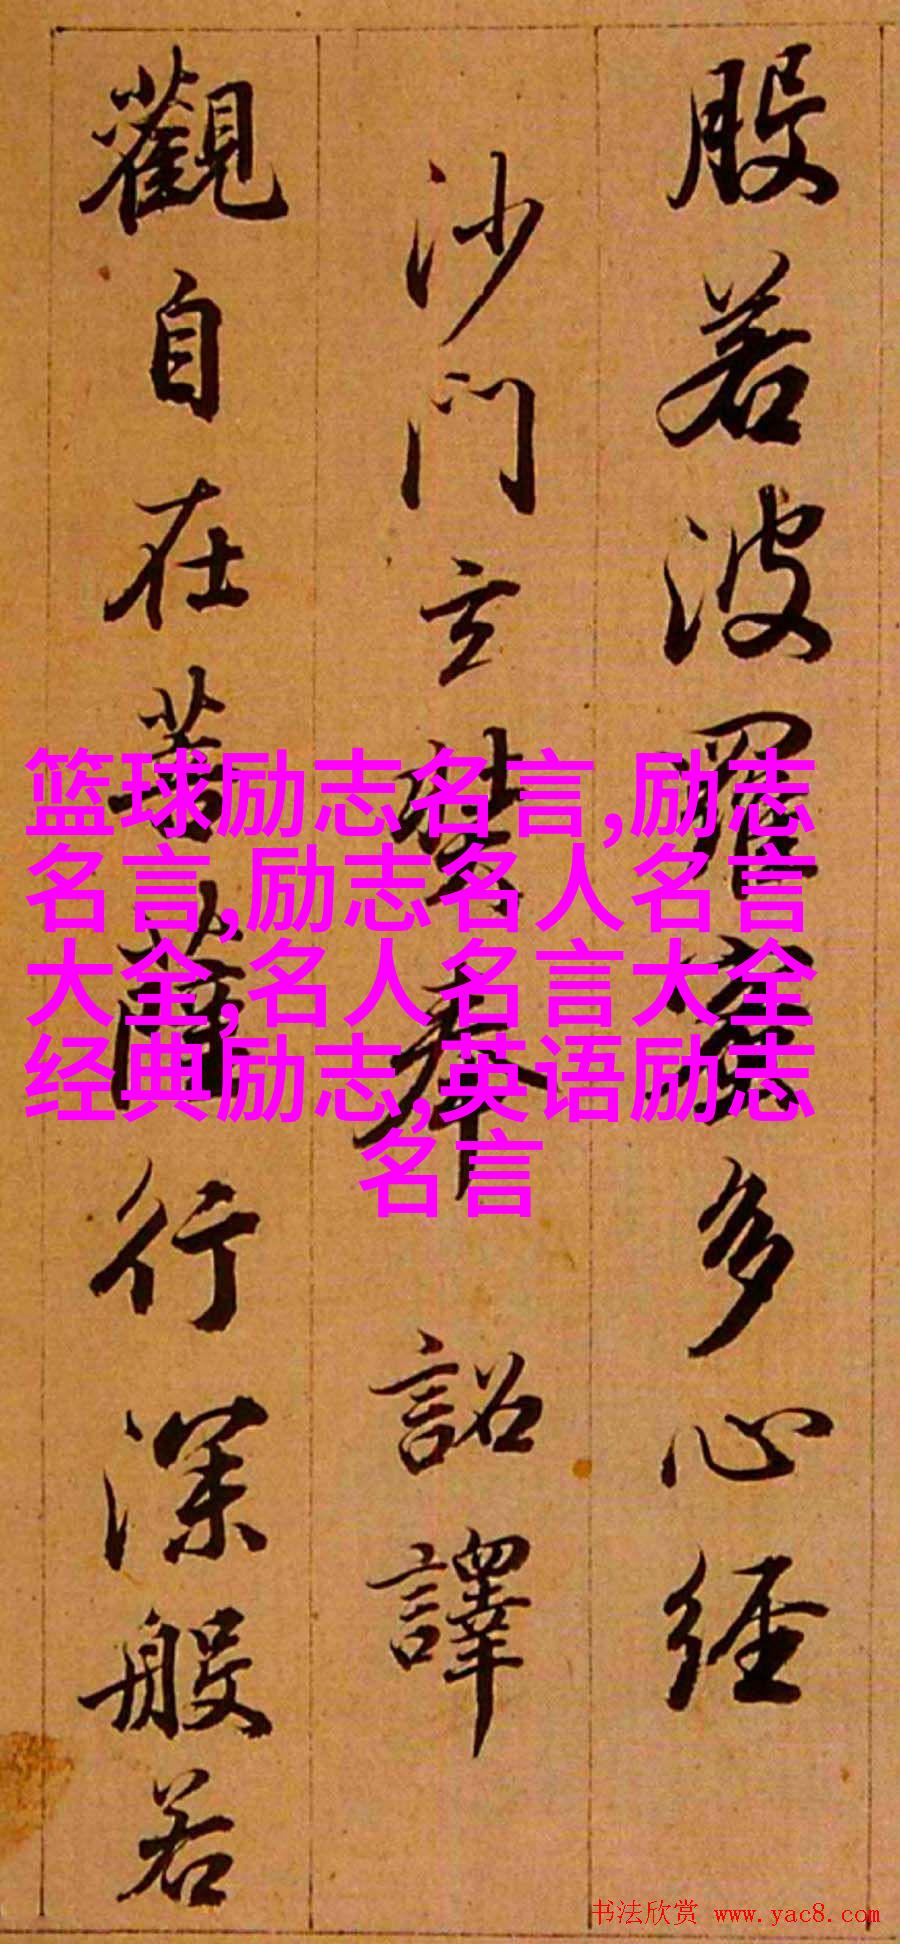 般若波羅蜜多心經
沙門玄奘奉 詔譯
觀自在菩薩行深般若
篮球励志名言,励志
名言,励志名人名言
大全,名人名言大全
经典励志,英语励志
名言
书法欣赏 www.yac8.com